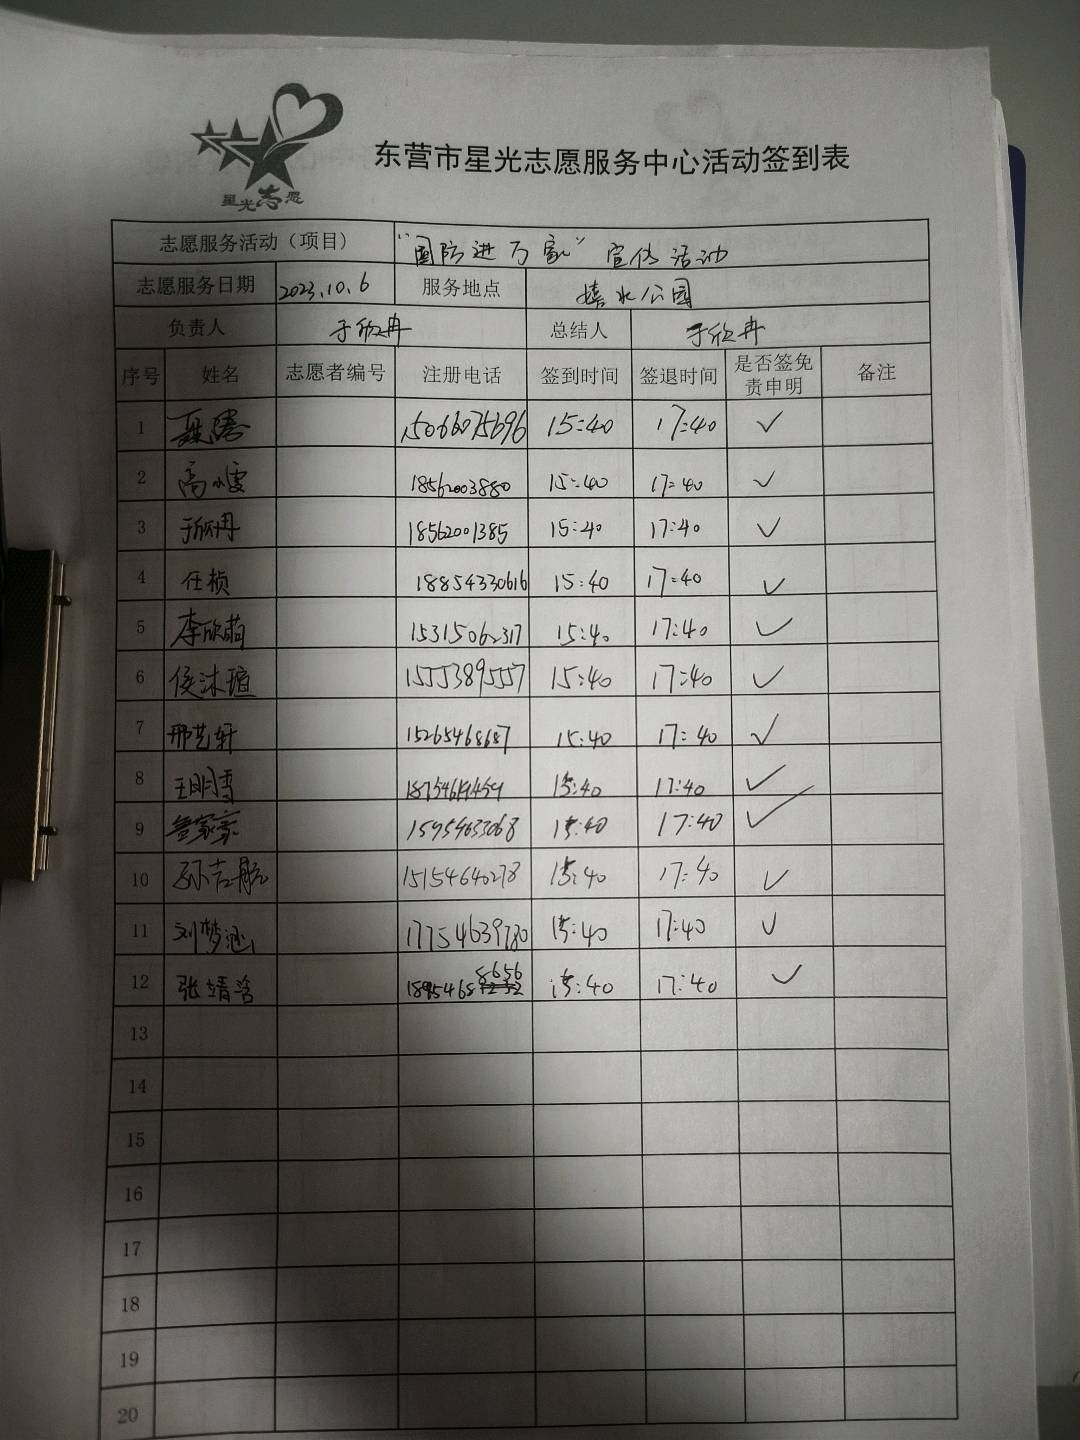 星光志愿
东营市星光志愿服务中心活动签到表
志愿服务活动（项目） “国防进万家”宣传活动
志愿服务日期 2023.10.6 服务地点 嬉水公园
负责人 于欣冉 总结人 于欣冉
序号 姓名 志愿者编号 注册电话 签到时间 签退时间 是否签免责申明 备注
1 聂腾 15066075696 15:40 17:40 ✓
2 高小雯 18562003880 15:40 17:40 ✓
3 于欣冉 18562001385 15:40 17:40 ✓
4 任桢 18854330616 15:40 17:40 ✓
5 李欣萌 15315062317 15:40 17:40 ✓
6 侯沐瑄 15553895557 15:40 17:40 ✓
7 邢艺轩 15265468687 15:40 17:40 ✓
8 王明雪 15:40 17:40 ✓
9 家豪 15:40 17:40 ✓
10 孙吉航 15154640278 15:40 17:40 ✓
11 刘梦涵 17754639780 15:40 17:40 ✓
12 张靖 15:40 17:40 ✓
13
14
15
16
17
18
19
20